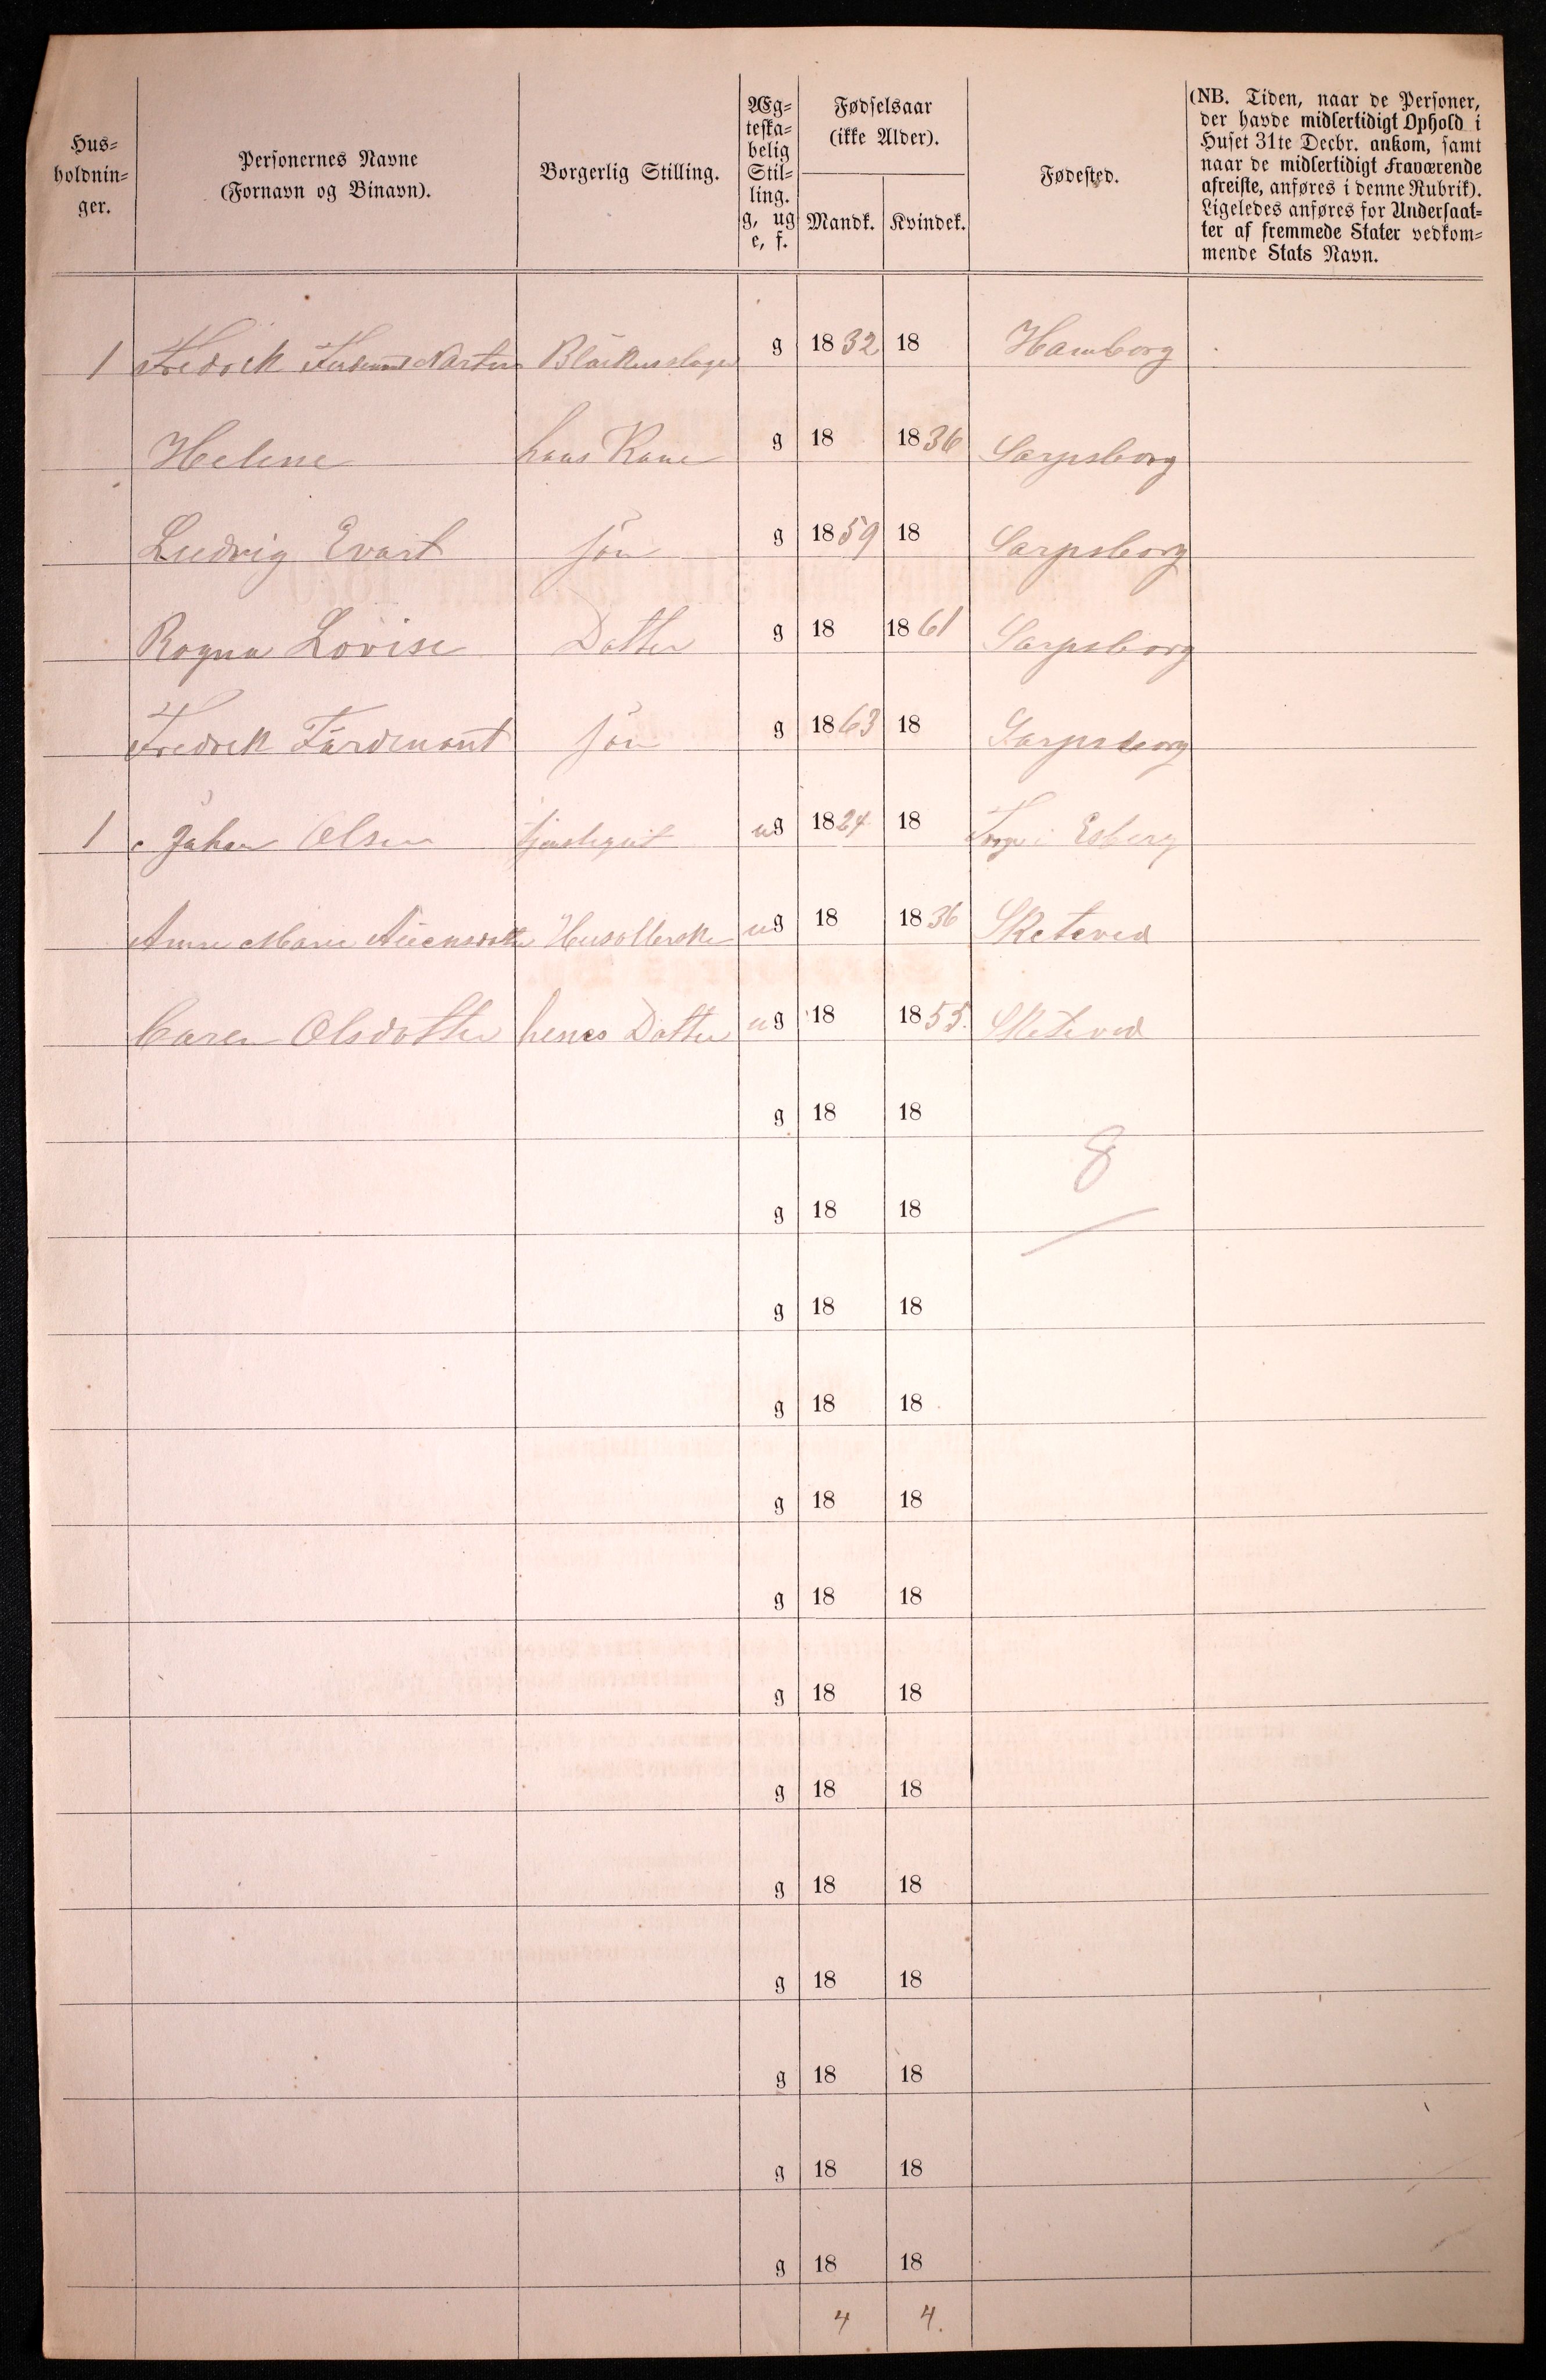 Hus=
holdnin=
ger.
Personernes Navne
(Fornavn og Binavn).
Borgerlig Stilling.
Æg=
teska=
belig
Stil=
ling.
g, ug
e, f.
Fødselsaar
(ikke Alder).
Mandk. Kvindek.
Fødested.
(NB. Tiden, naar de Personer,
der havde midlertidigt Ophold i
Huset 31te Decbr. ankom, samt
naar de midlertidigt Fraværende
afreiste, anføres i denne Rubrik).
Ligeledes anføres for Undersaat=
ter af fremmede Stater vedkom=
mende Stats Navn.
1 Fredrik g 1832 18 Hamborg
Helene hans Kone g 18 1836 Sarpsborg
Ludvig Evart sön g 1859 18 Sarpsborg
Ragna Lovise Datter g 18 1861 Sarpsborg
Fredrik Färdinant sön g 1863 18 Sarpsborg
1 Johan Olsen ug 1824 18
Anne Marie ug 18 1836 Sketeved
Caren Olsdotter henes Datter ug 18 1855 Sketeved
g 18 18
8
g 18 18
g 18 18
g 18 18
g 18 18
g 18 18
g 18 18
g 18 18
g 18 18
g 18 18
g 18 18
g 18 18
g 18 18
4 4.